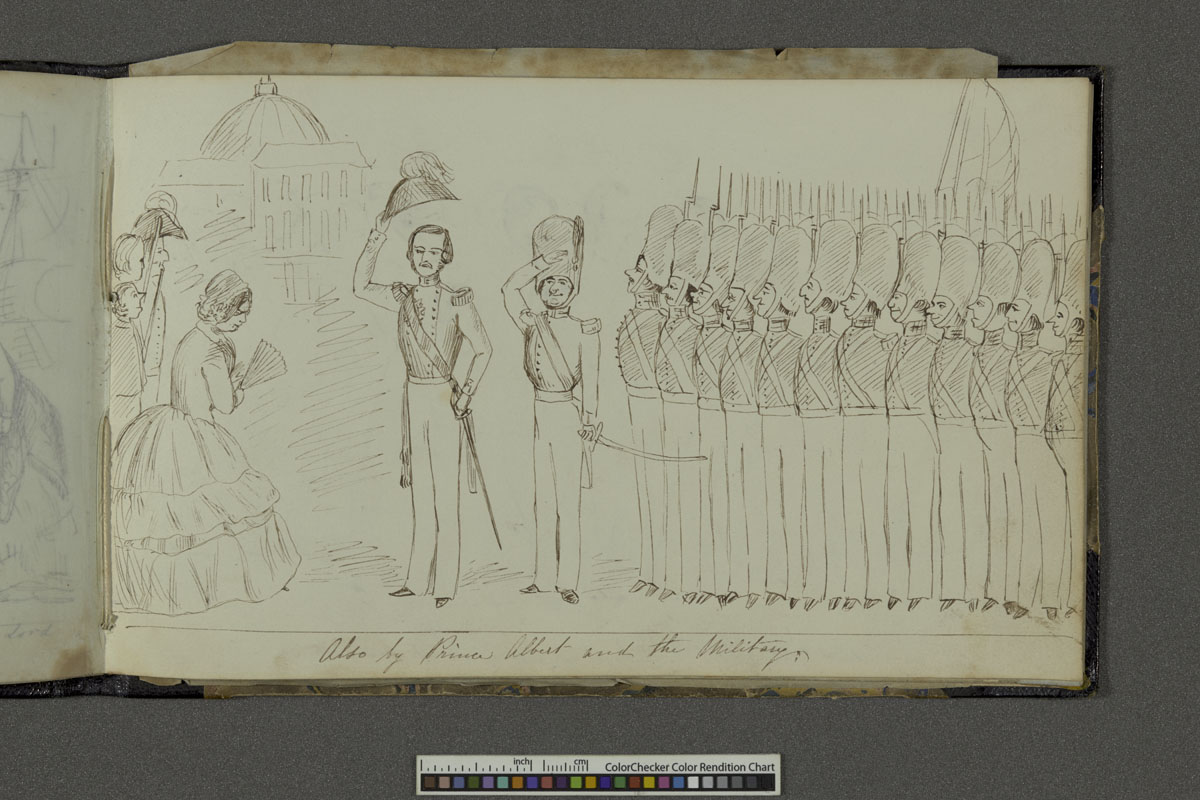 Lord
Also by Prince Albert and the Military.
inch
cm
ColorChecker Color Rendition Chart